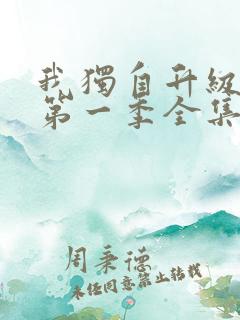 我獨自升級
第一季全集
周秉德
未經同意禁止轉載